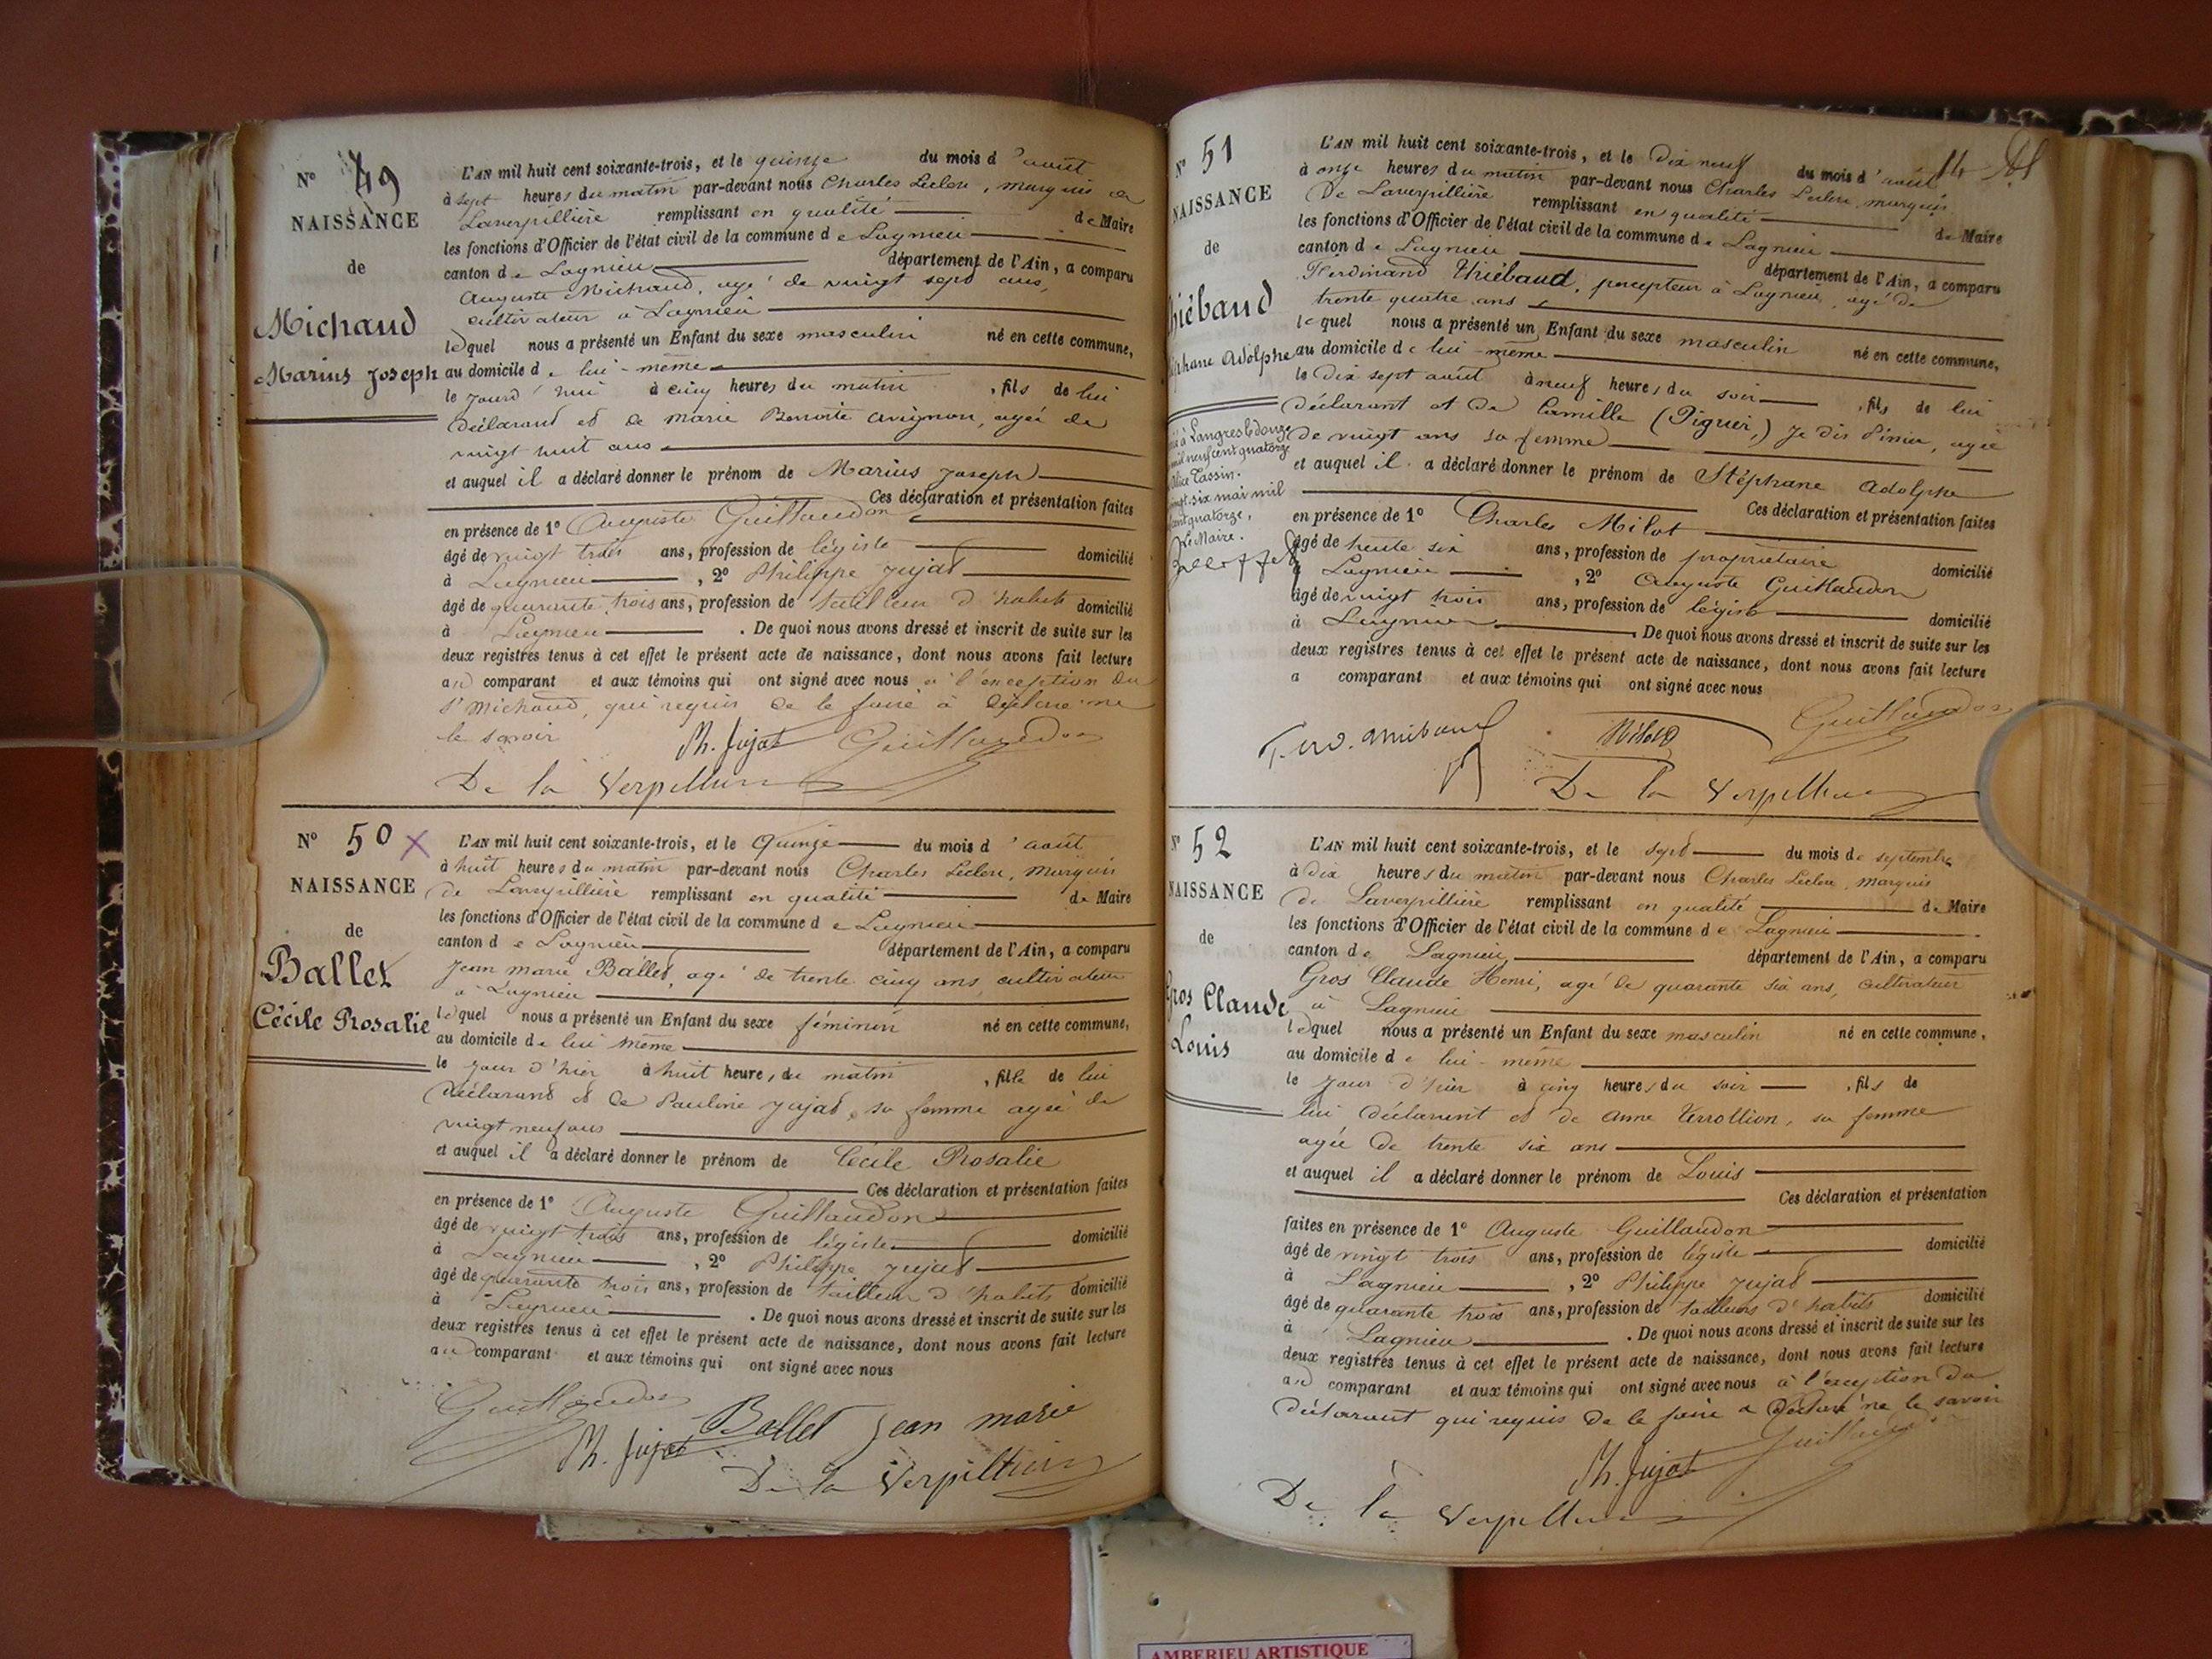 N° 49
NAISSANCE
de
Michaud
Marius Joseph
L'AN mil huit cent soixante-trois, et le quinze du mois d'août
à sept heures du matin par-devant nous Charles Leclerc, marquis de
Laverpillière remplissant en qualité de Maire
les fonctions d'Officier de l'état civil de la commune de Lagnieu
canton de Lagnieu département de l'Ain, a comparu
Auguste Michaud, agé de vingt sept ans,
cultivateur à Lagnieu
lequel nous a présenté un Enfant du sexe masculin né en cette commune,
au domicile de lui-même
le jourd'hui à cinq heures du matin, fils de lui
déclarant et de Marie Benoite Avignon, agée de
vingt huit ans
et auquel il a déclaré donner le prénom de Marius Joseph
Ces déclaration et présentation faites
en présence de 1° Auguste Guillaudon
âgé de vingt trois ans, profession de légiste domicilié
à Lagnieu, 2° Philippe Jujat
âgé de quarante trois ans, profession de tailleur d'habits domicilié
à Lagnieu. De quoi nous avons dressé et inscrit de suite sur les
deux registres tenus à cet effet le présent acte de naissance, dont nous avons fait lecture
au comparant et aux témoins qui ont signé avec nous à l'exception du
Sr Michaud, qui requis de le faire à déclaré ne
le savoir
Ph. Jujat Guillaudon
De la Verpillière
N° 50 X
NAISSANCE
de
Ballet
Cécile Rosalie
L'AN mil huit cent soixante-trois, et le Quinze du mois d'août
à huit heures du matin par-devant nous Charles Leclerc, marquis
de Laverpillière remplissant en qualité de Maire
les fonctions d'Officier de l'état civil de la commune de Lagnieu
canton de Lagnieu département de l'Ain, a comparu
Jean marie Ballet, agé de trente cinq ans, cultivateur
à Lagnieu
lequel nous a présenté un Enfant du sexe féminin né en cette commune,
au domicile de lui même
le jour d'hier à huit heures du matin, fille de lui
déclarant et de Pauline Jujat, sa femme agée de
vingt neuf ans
et auquel il a déclaré donner le prénom de Cécile Rosalie
Ces déclaration et présentation faites
en présence de 1° Auguste Guillaudon
âgé de vingt trois ans, profession de légiste domicilié
à Lagnieu, 2° Philippe Jujat
âgé de quarante trois ans, profession de tailleur d'habits domicilié
à Lagnieu. De quoi nous avons dressé et inscrit de suite sur les
deux registres tenus à cet effet le présent acte de naissance, dont nous avons fait lecture
au comparant et aux témoins qui ont signé avec nous
Guillaudon
Ph. Jujat Ballet jean marie
De la Verpillière
N° 51
NAISSANCE
de
hiébaud
éphane Adolphe
à Langres le douze
mil neuf cent quatorze
Alice Tassin.
ingt-six mai mil
cent quatorze,
Le Maire.
L'AN mil huit cent soixante-trois, et le Dix neuf du mois d'août
à onze heures du matin par-devant nous Charles Leclerc, marquis
De Laverpillière remplissant en qualité de Maire
les fonctions d'Officier de l'état civil de la commune de Lagnieu
canton de Lagnieu département de l'Ain, a comparu
Ferdinand Thiébaud, percepteur à Lagnieu, agé de
trente quatre ans
lequel nous a présenté un Enfant du sexe masculin né en cette commune,
au domicile de lui-même
le Dix sept août à neuf heures du soir, fils de lui
déclarant et de Camille (Piguier,) Je dis Pinier, agée
de vingt ans sa femme
et auquel il a déclaré donner le prénom de Stéphane Adolphe
Ces déclaration et présentation faites
en présence de 1° Charles Milot
âgé de trente six ans, profession de propriétaire domicilié
à Lagnieu, 2° Auguste Guillaudon
âgé de vingt trois ans, profession de légiste domicilié
à Lagnieu. De quoi nous avons dressé et inscrit de suite sur les
deux registres tenus à cet effet le présent acte de naissance, dont nous avons fait lecture
a comparant et aux témoins qui ont signé avec nous
Milot Guillaudon
De la Verpillière
N° 52
NAISSANCE
de
Gros Claude
Louis
L'AN mil huit cent soixante-trois, et le sept du mois de septembre
à dix heures du matin par-devant nous Charles Leclerc, marquis
de Laverpillière remplissant en qualité de Maire
les fonctions d'Officier de l'état civil de la commune de Lagnieu
canton de Lagnieu, département de l'Ain, a comparu
Gros Claude Henri, agé de quarante six ans, cultivateur
à Lagnieu
lequel nous a présenté un Enfant du sexe masculin né en cette commune,
au domicile de lui-même
le jour d'hier à cinq heures du soir, fils de
lui déclarant et de Anne Verrollion, sa femme
agée de trente six ans
et auquel il a déclaré donner le prénom de Louis
Ces déclaration et présentation
faites en présence de 1° Auguste Guillaudon
âgé de vingt trois ans, profession de légiste domicilié
à Lagnieu, 2° Philippe Jujat
âgé de quarante trois ans, profession de tailleurs d'habits domicilié
à Lagnieu. De quoi nous avons dressé et inscrit de suite sur les
deux registres tenus à cet effet le présent acte de naissance, dont nous avons fait lecture
au comparant et aux témoins qui ont signé avec nous à l'exception du
déclarant qui requis de le faire a déclaré ne le savoir
Ph. Jujat Guillaudon
De la Verpillière
AMBERIEU ARTISTIQUE